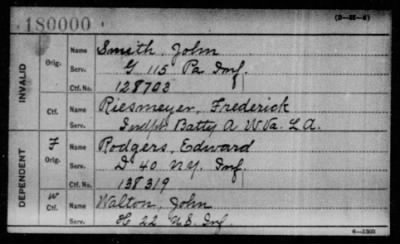 (D-22-6)
180000
INVALID
Orig.
Name Smith, John
Serv. G 115 Pa Inf.
Ctf. No. 128703
Ctf.
Name Riesmeyer, Frederick
Serv. Batty A W Va. L A.
DEPENDENT
F
Orig.
Name Rodgers, Edward
Serv. D 40 N.Y. Inf.
Ctf. No. 138319
W
Ctf.
Name Walton, John
Serv. 22 U.S. Inf